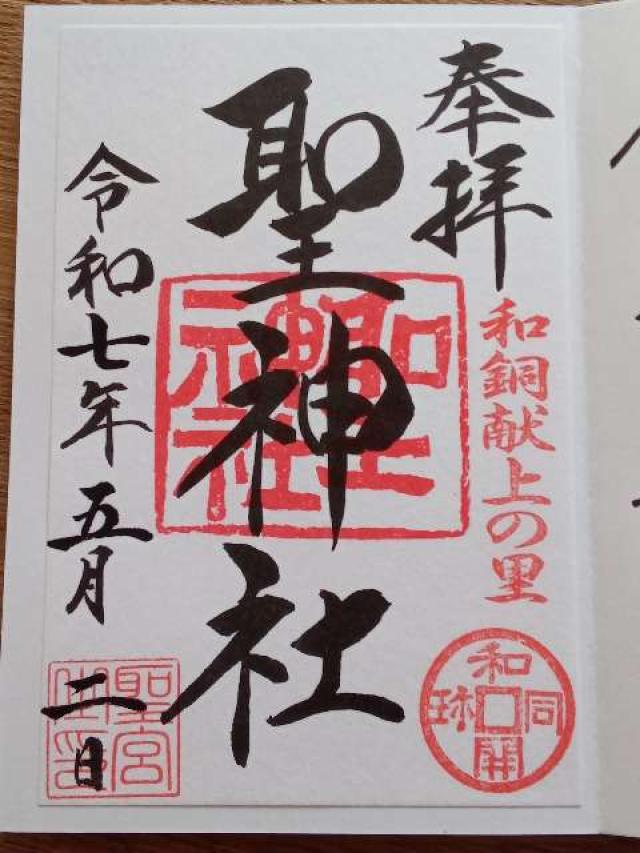 奉拝
和銅献上の里
和同開珎
聖神社
聖神社
令和七年五月二日
聖宮
御印